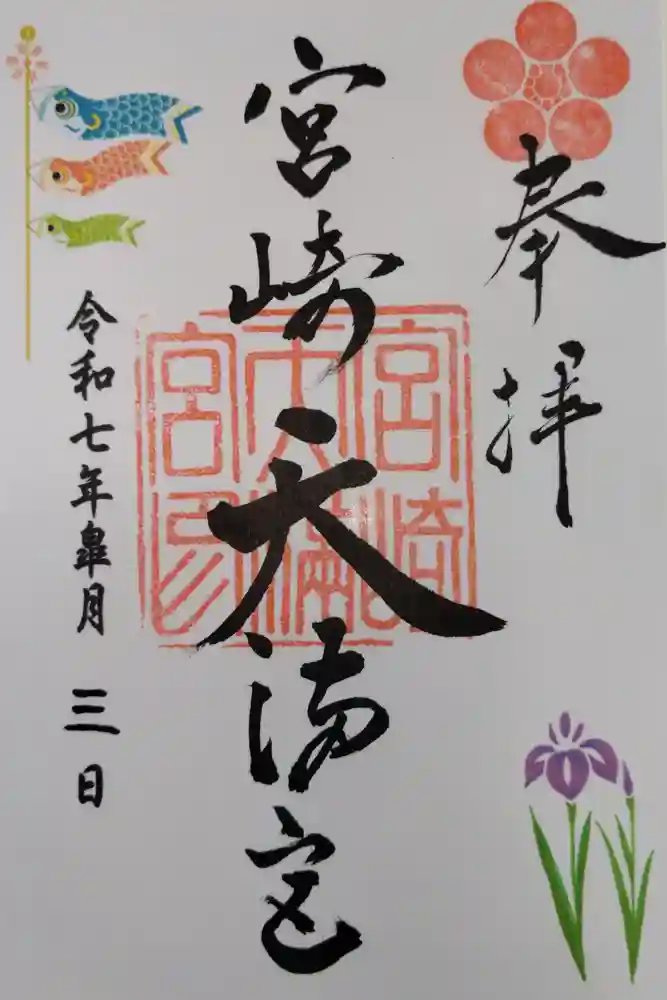 奉拝
宮崎天満宮
宮崎
天満
宮印
令和七年皐月 三日